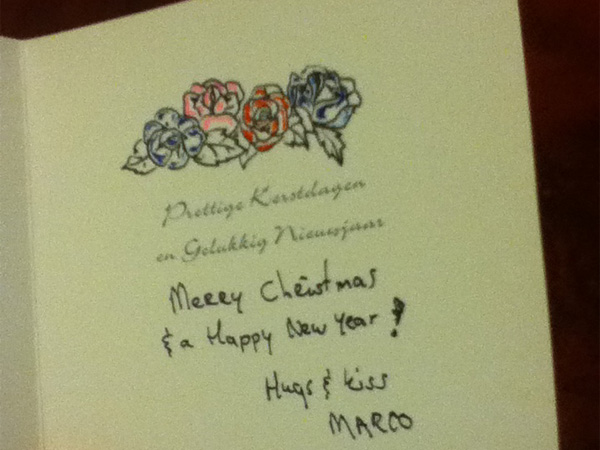 Prettige Kerstdagen
en Gelukkig Nieuwjaar
Merry Christmas
& a Happy New Year !
Hugs & kiss
MARCO